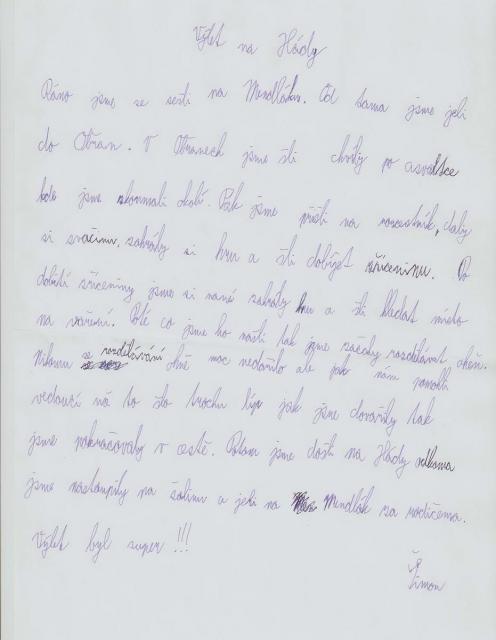 Výlet na Hády
Ráno jsme se sešli na Mendláku. Od tama jsme jeli
do Obřan. V Obřanech jsme šli chvíly po asvaltce
kde jsme skoumali okolí. Pak jsme přišli na roscestník, daby
si svačinu, zahrály si hru a šli dobíjet zříceninu. Po
dobití zříceniny jsme si znovu zahrály hru a šli hledat místo
na vaření. Poté co jsme ho našli tak jsme začaly rozdělávat oheň.
Nikomu se rozdělávání ohně moc nedařilo ale jak nám pomohli
vedoucí nó to šlo trochu líp jak jsme dovařily tak
jsme pokračovaly v cestě. Potom jsme došli na Hády odkama
jsme nastoupily na šalinu a jeli na Mendlák za rodičema.
Výlet byl super !!!
Šimon